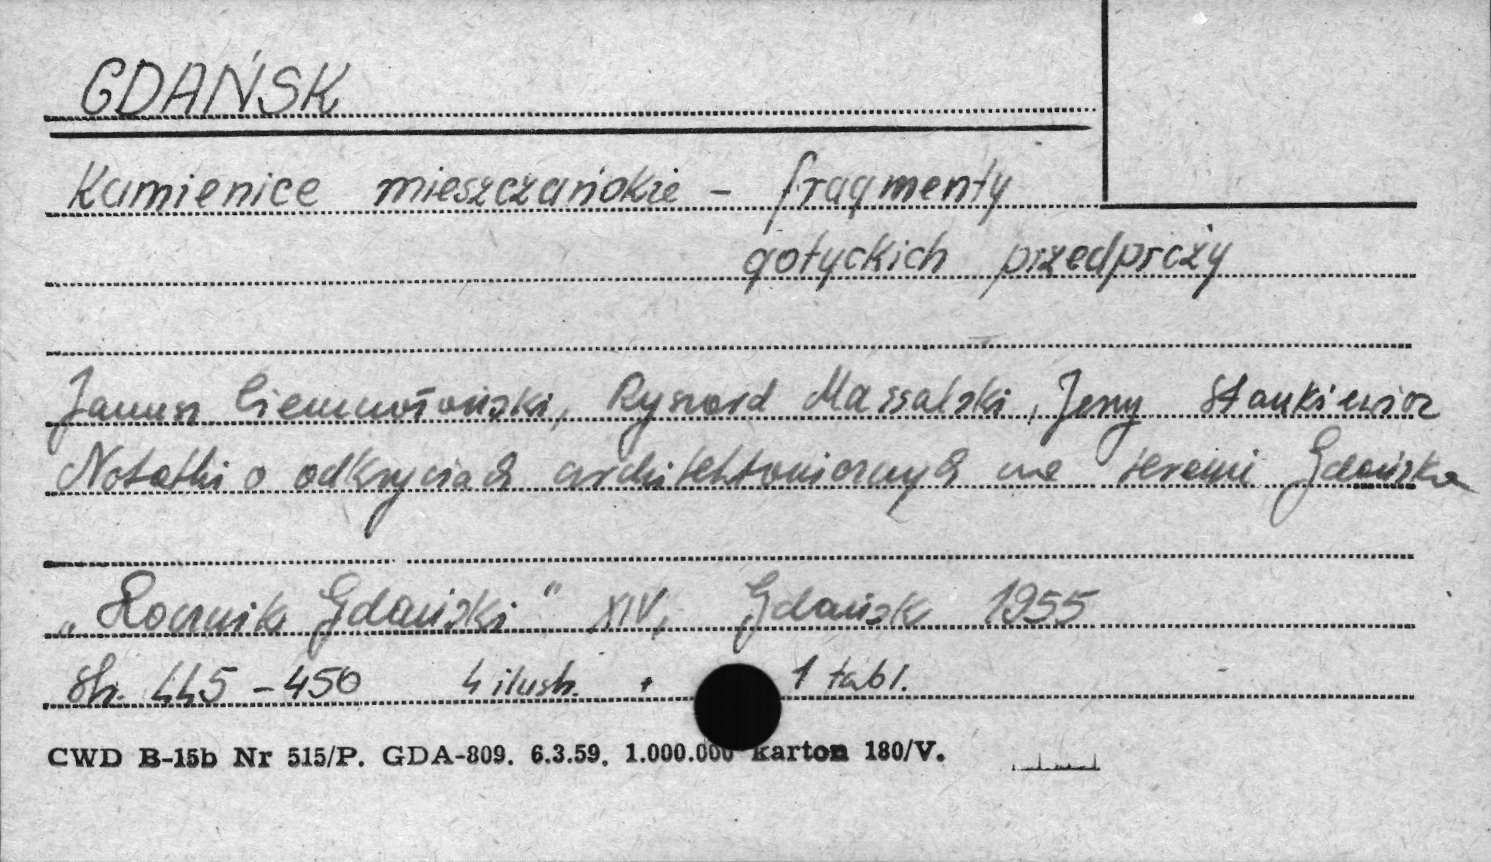 GDAŃSK
Kamienice mieszczańskie - fragmenty
gotyckich przedproży
Janusz Ciemnołoński, Ryszard Massalski, Jerzy Stankiewicz
Notatki o odkryciach architektonicznych na terenie Gdańska
„Rocznik Gdański" XIV, Gdańsk 1955
str. 445-450 4 ilustr. + 1 tabl.
CWD B-15b Nr 515/P. GDA-809. 6.3.59. 1.000.000 karton 180/V.